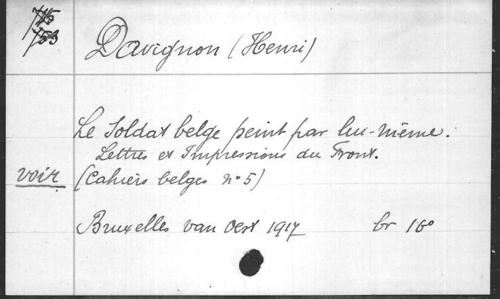 Davignon (Henri)
Le Soldat belge peint par lui-même.
Lettres et Impressions du Front.
voir (Cahiers belges n° 5)
Bruxelles van Oest 1917 br 16°